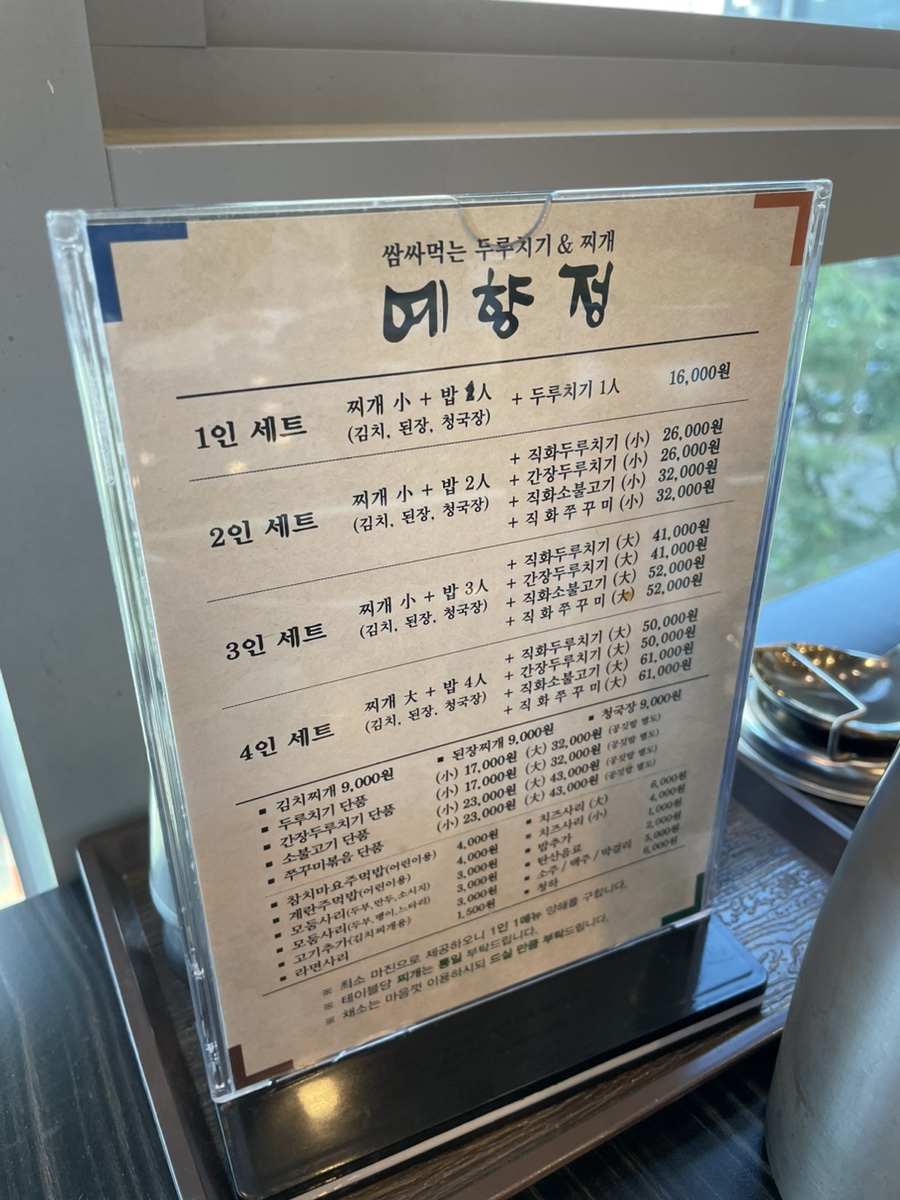 쌈싸먹는 두루치기 & 찌개
예향정
1인 세트 찌개 小 + 밥 1人 + 두루치기 1人 16,000원
(김치, 된장, 청국장)
2인 세트 찌개 小 + 밥 2人 (김치, 된장, 청국장)
+ 직화두루치기 (小) 26,000원
+ 간장두루치기 (小) 26,000원
+ 직화소불고기 (小) 32,000원
+ 직화쭈꾸미 (小) 32,000원
3인 세트 찌개 小 + 밥 3人 (김치, 된장, 청국장)
+ 직화두루치기 (大) 41,000원
+ 간장두루치기 (大) 41,000원
+ 직화소불고기 (大) 52,000원
+ 직화쭈꾸미 (大) 52,000원
4인 세트 찌개 大 + 밥 4人 (김치, 된장, 청국장)
+ 직화두루치기 (大) 50,000원
+ 간장두루치기 (大) 50,000원
+ 직화소불고기 (大) 61,000원
+ 직화쭈꾸미 (大) 61,000원
▪ 김치찌개 9,000원 ▪ 된장찌개 9,000원 ▪ 청국장 9,000원
▪ 두루치기 단품 (小) 17,000원 (大) 32,000원 (공깃밥 별도)
▪ 간장두루치기 단품 (小) 17,000원 (大) 32,000원 (공깃밥 별도)
▪ 소불고기 단품 (小) 23,000원 (大) 43,000원 (공깃밥 별도)
▪ 쭈꾸미볶음 단품 (小) 23,000원 (大) 43,000원 (공깃밥 별도)
▪ 참치마요주먹밥(어린이용) 4,000원
▪ 계란주먹밥(어린이용) 4,000원
▪ 모둠사리(두부,만두,소시지) 3,000원
▪ 모둠사리(두부,팽이,느타리) 3,000원
▪ 고기추가(김치찌개용) 3,000원
▪ 라면사리 1,500원
▪ 치즈사리 (大) 6,000원
▪ 치즈사리 (小) 4,000원
▪ 밥추가 1,000원
▪ 탄산음료 2,000원
▪ 소주 / 맥주 / 막걸리 5,000원
▪ 청하 6,000원
※ 최소 마진으로 제공하오니 1인 1메뉴 양해를 구합니다.
※ 테이블당 찌개는 통일 부탁드립니다.
※ 채소는 마음껏 이용하시되 드실 만큼 부탁드립니다.